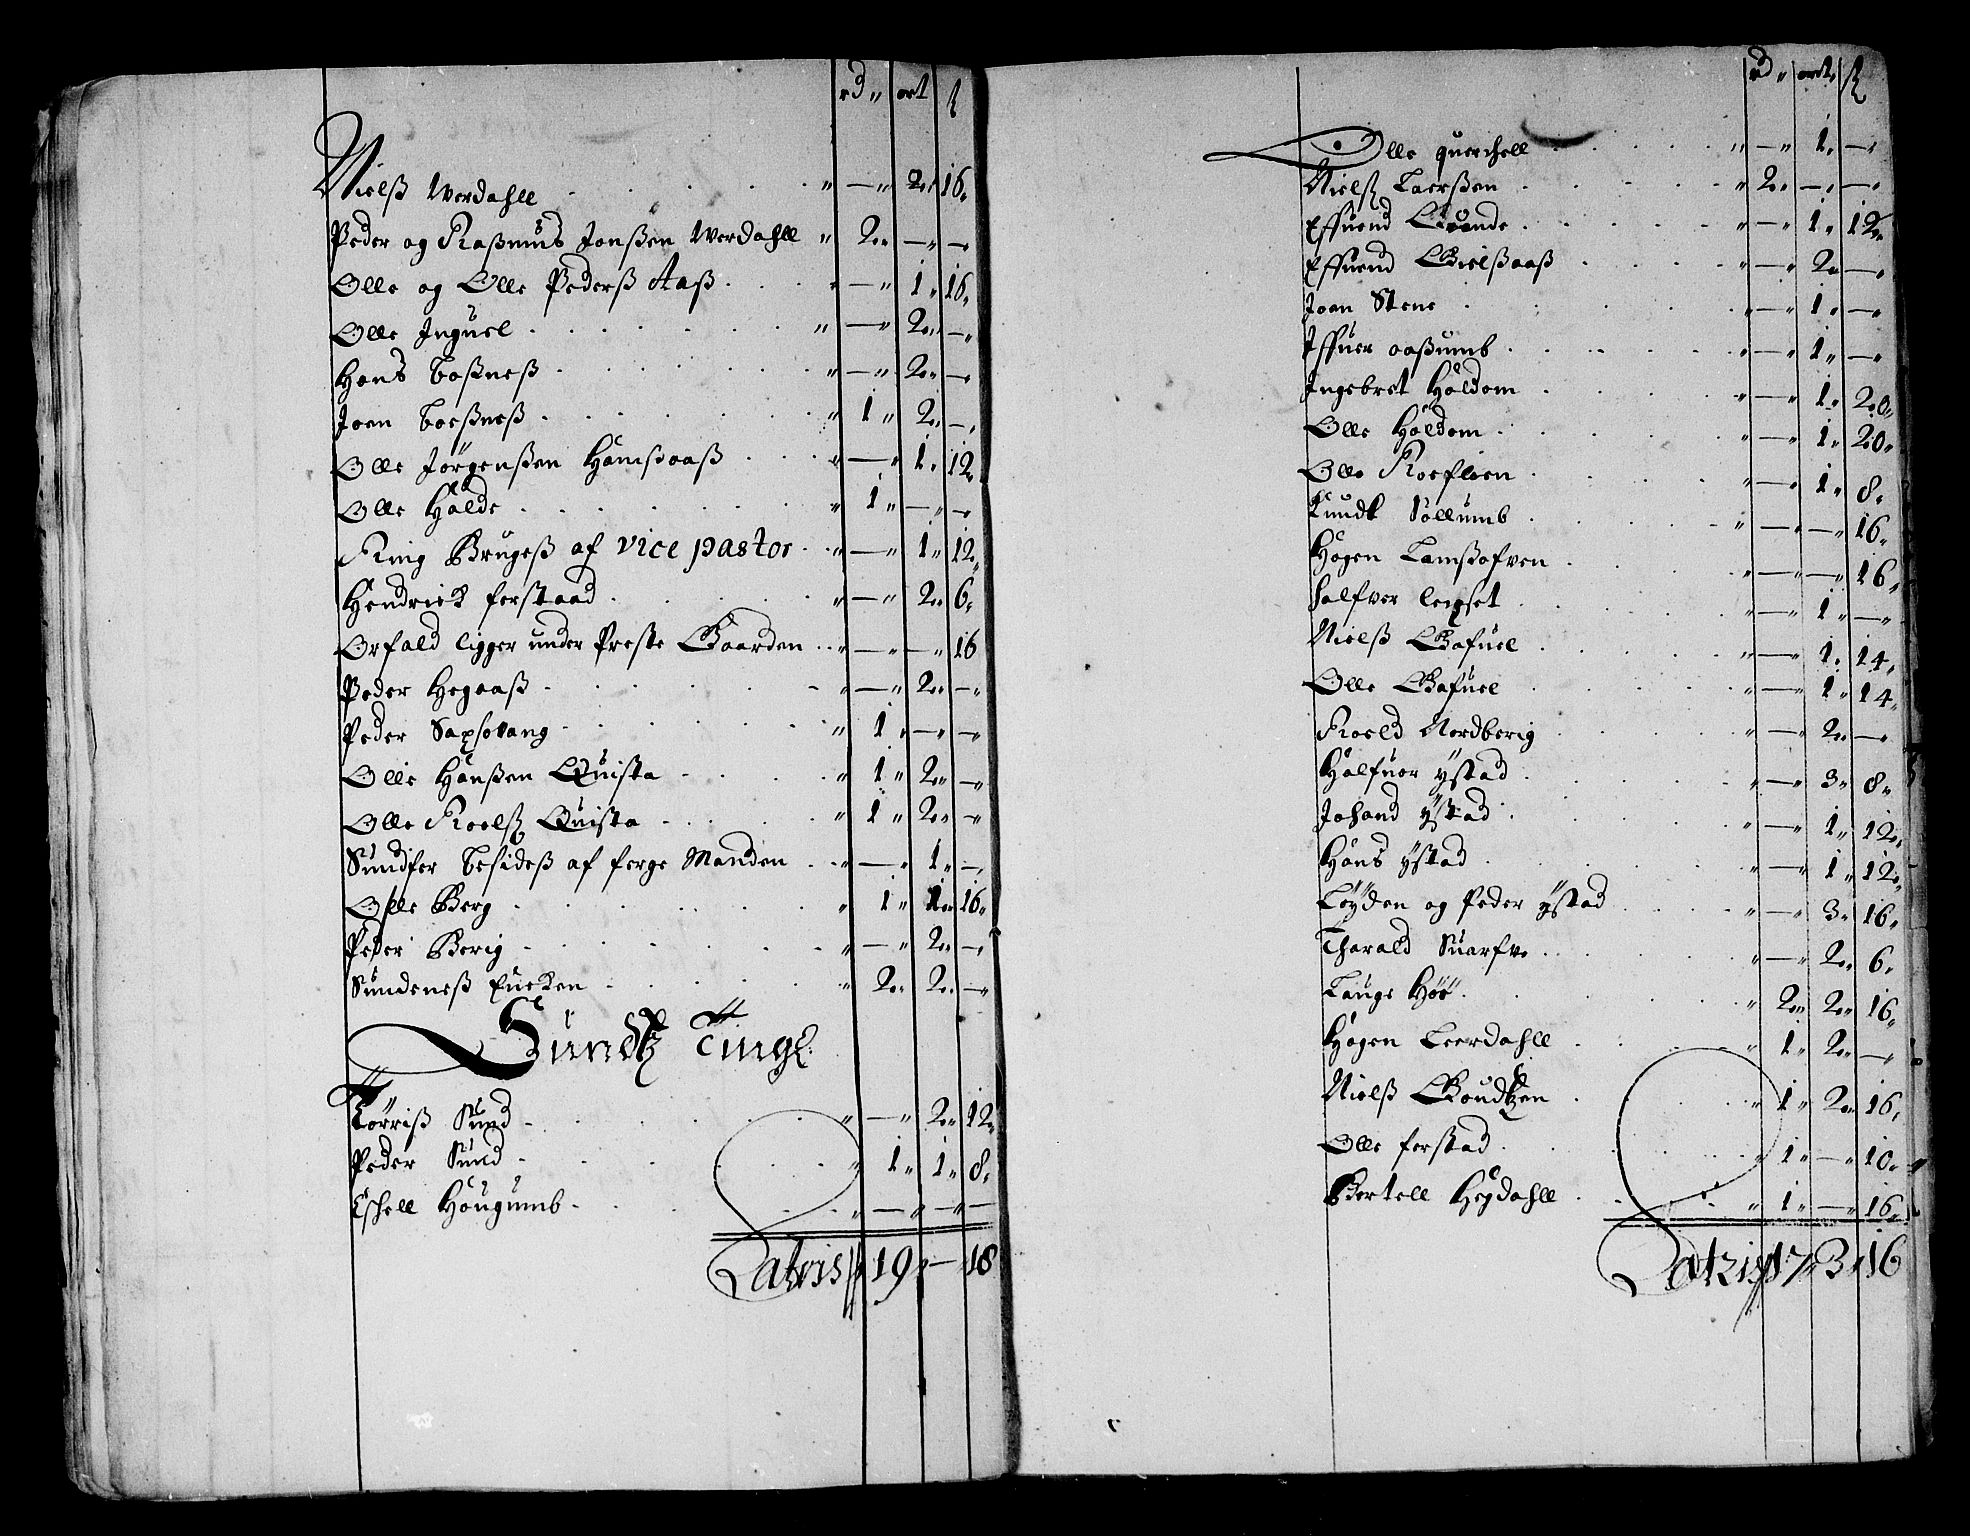 rd " ort ß
Nielß Werdahll " — " 2 " 16 "
Peder og Raßmus Jonßen Werdahll " 2 " — " — "
Olle og Olle Pederß Aaß " — " 1 " 16 "
Olle Inguel " — " 2 " — "
Hans Boßneß " — " 2 " — "
Joen Boeßneß " 1 " 2 " — "
Olle Jörgenßen Hamßaaß " — " 1 " 12 "
Olle Halde " 1 " — " — "
Ring Brugeß af vice pastor " — " 1 " 12 "
Hendrick ferstaad " — " 2 " 6 "
Orfald ligger under Preste Gaarden " — " — " 16
Peder Hegaaß " — " 2 " — "
Peder Saxsovang " 1 " — " — "
Olle Hanßen Quista " 1 " 2 " — "
Olle Roelß Quista " 1 " 2 " — "
Sundfer besideß af ferge Manden " — " 1 " — "
Olle Berg " 1 " 1 " 16 "
Peder Berig " — " 2 " — "
Sundeneß Encken " 2 " 2 " — "
Sundtz Tingl.
Törriß Sund " — " 2 " 12 "
Peder Sund " 1 " 1 " 8 "
Eschell Hougumb " — " — " —
Lateris 19 " — " 18
rd " ort " ß
Olle querchell " — " 1 " — "
Nielß Laerßen " 2 " — " — "
Effuend Lunde " — " 1 " 12 "
Effuend Gielßaaß " — " 2 " — "
Joen Stene " — " 1 " — "
Iffuer aaßumb " — " 1 " — "
Ingebret Haldom " — " 1 " 20 "
Olle Haldom " — " 1 " 20 "
Olle Roeflien " — " 1 " 8 "
Knudt Sollumb " — " — " 16 "
Hagen Lamßofven " — " — " 16 "
Halfver lexset " — " 1 " — "
Nielß Gafuel " — " 1 " 14 "
Olle Gafuel " — " 1 " 14 "
Roeld Nordberig " — " 2 " — "
Halfuor ÿstad " — " 3 " 8 "
Johand ÿstad " — " 1 " 12 "
Hans ÿstad " — " 1 " 12 "
Löyden og Peder ÿstad " — " 3 " 16 "
Tharald Suarfve " — " 2 " 6 "
Lauge Höe " 2 " 2 " 16 "
Hagen Leerdahll " 1 " 2 " — "
Nielß Goudtzen " 1 " 2 " 16 "
Olle ferstad " 1 " — " 10 "
Bertell Hegdahll " 1 " — " 16 "
Lateris 17 " 3 " 16